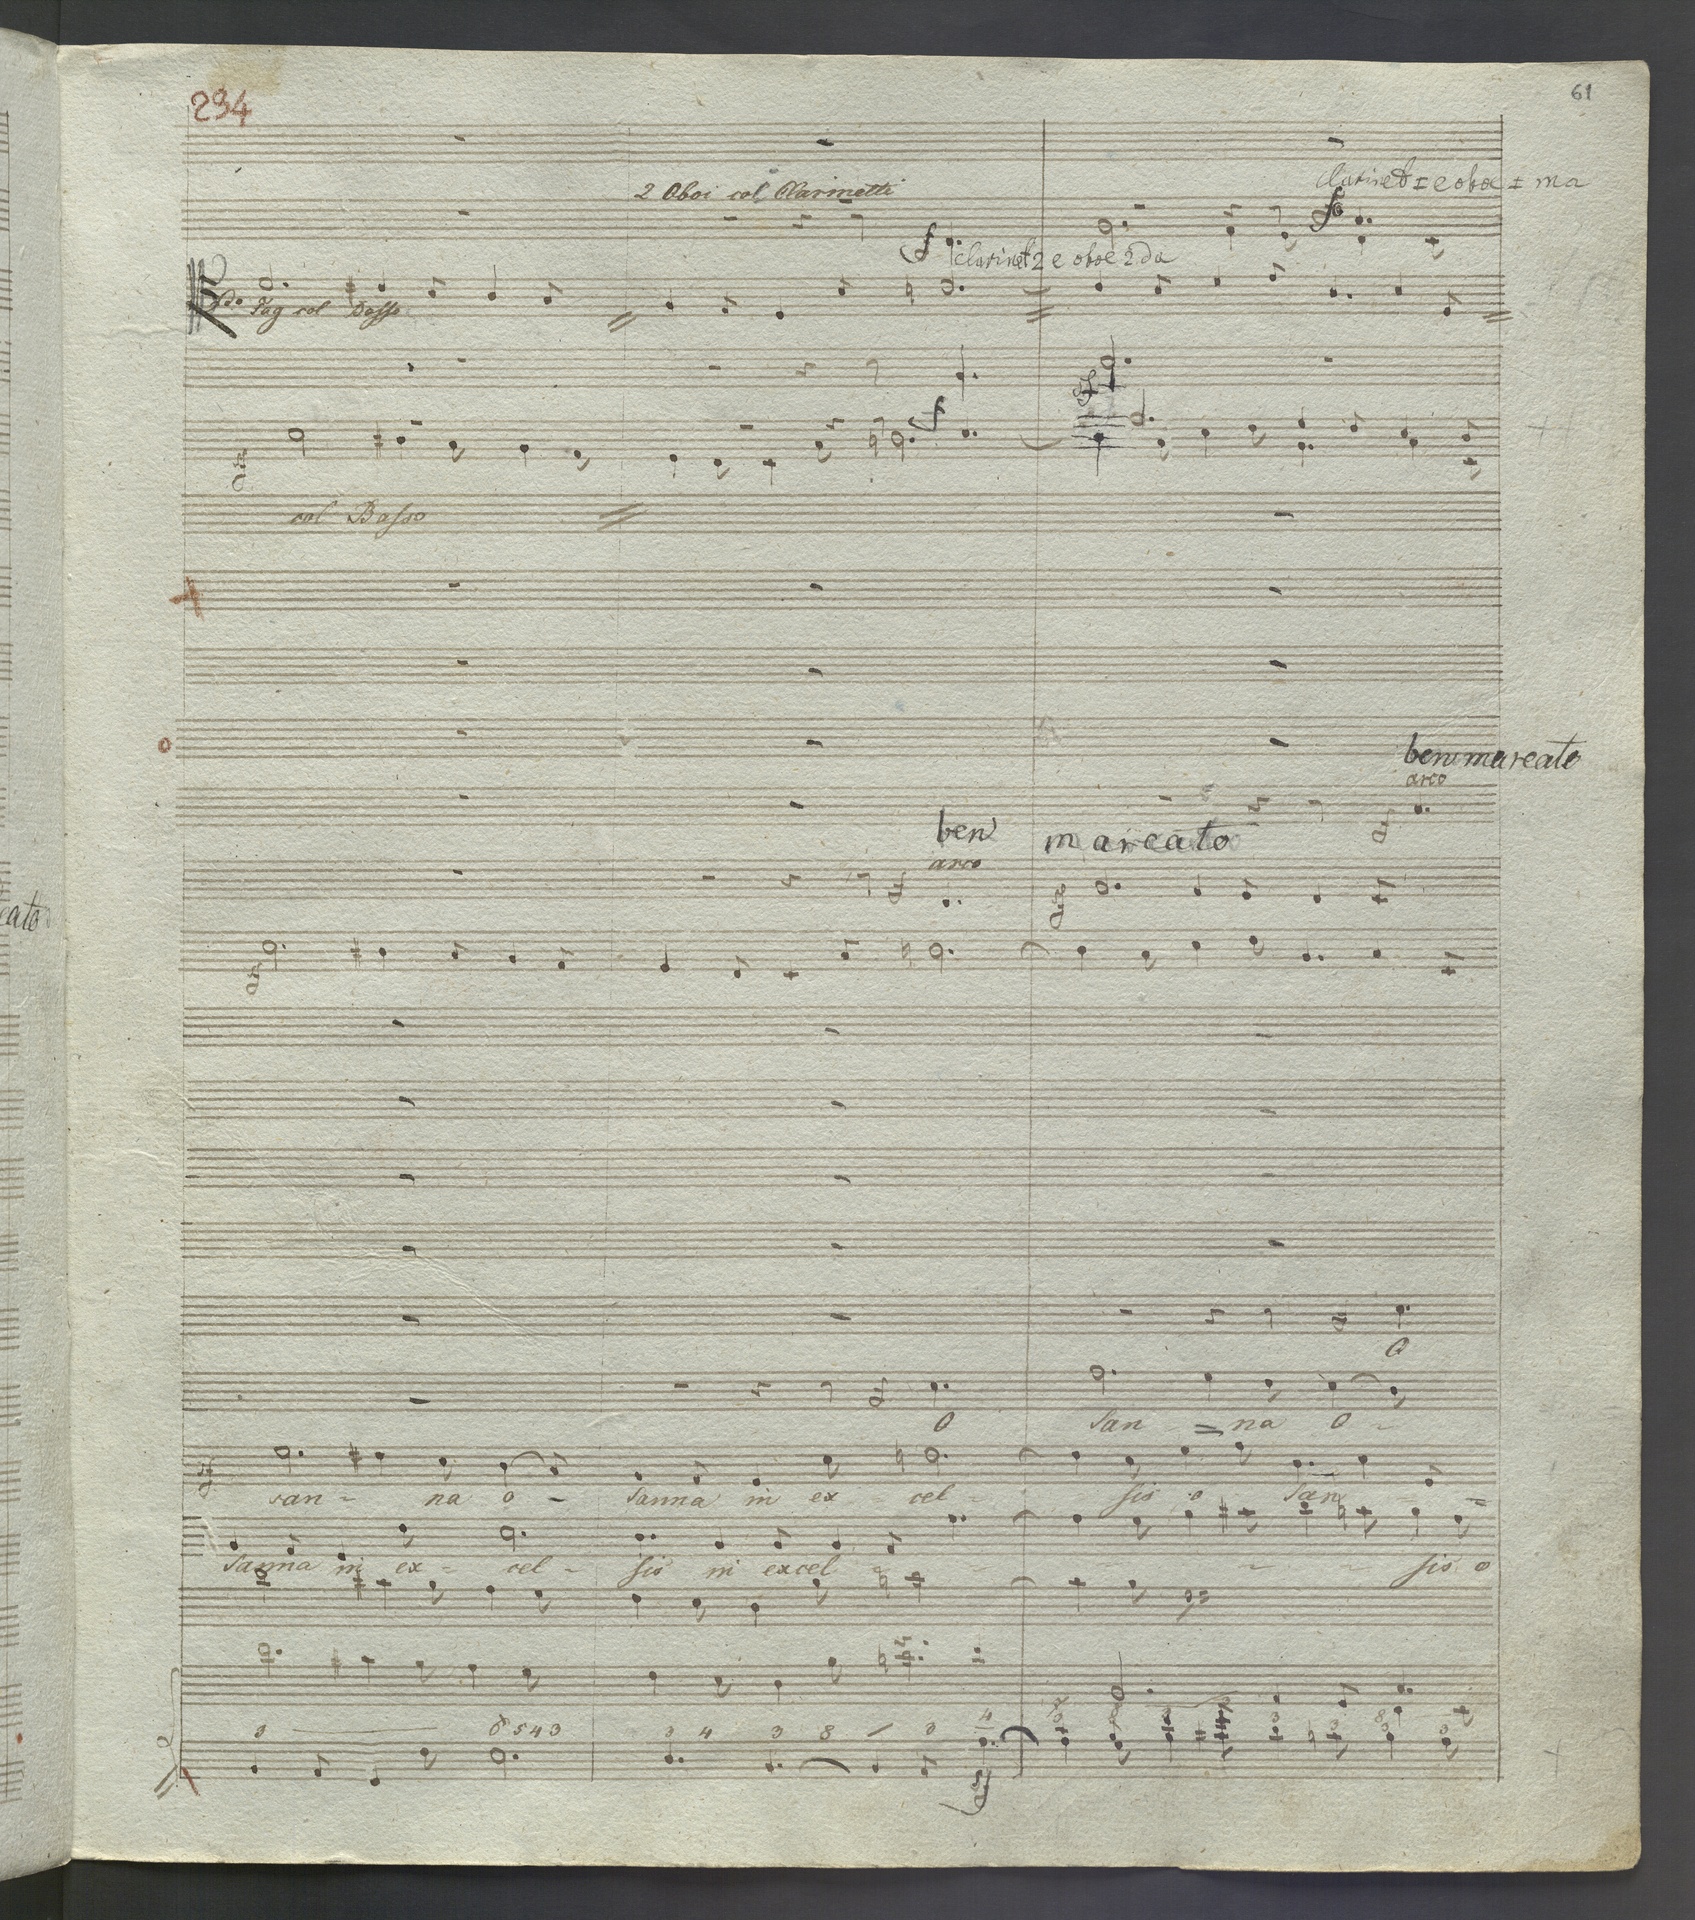 234
61
2 Oboi col Clarinetti
clarinet I e oboe I ma
f
f
clarinet 2 e oboe 2 da
2do Fag col Basso
sf
f
col Basso
ben marcato
arco
ben marcato
arco
cato
O
O san - na O -
san - na o - sanna in ex - cel - sis o san
sanna in ex - cel - sis in excel - - - sis o
3 8 5 4 3 3 4 3 8 3 4